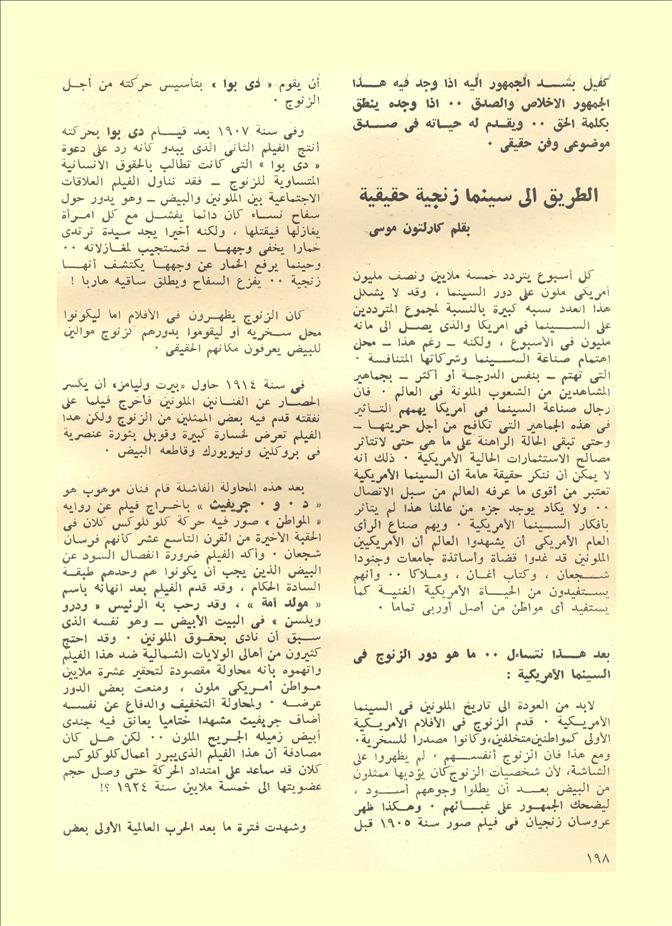 كفيل بشد الجمهور اليه اذا وجد فيه هذا
الجمهور الاخلاص والصدق ٠٠ اذا وجده ينطق
بكلمة الحق ٠٠ ويقدم له حياته فى صدق
موضوعى وفن حقيقى ٠
الطريق الى سينما زنجية حقيقية
بقلم كارلتون موسى
كل أسبوع يتردد خمسة ملايين ونصف مليون
أمريكى ملون على دور السينما ، وقد لا يشكل
هذا العدد نسبة كبيرة بالنسبة لمجموع المترددين
على السينما فى أمريكا والذى يصل الى مائة
مليون فى الأسبوع ، ولكنه ـ رغم هذا ـ محل
اهتمام صناعة السينما وشركاتها المتنافسة ٠
التى تهتم ـ بنفس الدرجة أو أكثر ـ بجماهير
المشاهدين من الشعوب الملونة فى العالم ٠ فان
رجال صناعة السينما فى أمريكا يهمهم التأثير
فى هذه الجماهير التى تكافح من أجل حريتها ـ
وحتى تبقى الحالة الراهنة على ما هى حتى لاتتأثر
مصالح الاستثمارات الحالية الأمريكية ٠ ذلك أنه
لا يمكن أن ننكر حقيقة هامة أن السينما الأمريكية
تعتبر من أقوى ما عرفه العالم من سبل الاتصال
٠٠ ولا يكاد يوجد جزء من عالمنا هذا لم يتأثر
بأفكار السينما الأمريكية ٠ ويهم صناع الرأى
العام الأمريكى أن يشهدوا العالم أن الأمريكيين
الملونين قد غدوا قضاة وأساتذة جامعات وجنودا
شجعان ، وكتاب أغان ، وملاكا ٠٠ وأنهم
يستفيدون من الحياة الأمريكية الغنية كما
يستفيد أى مواطن من أصل أوربى تماما ٠
بعد هذا نتساءل ٠٠ ما هو دور الزنوج فى
السينما الأمريكية :
لابد من العودة الى تاريخ الملونين فى السينما
الأمريكية ٠ قدم الزنوج فى الأفلام الأمريكية
الأولى كمواطنين متخلفين، وكانوا مصدرا للسخرية.
ومع هذا فان الزنوج أنفسهم ، لم يظهروا على
الشاشة، لأن شخصيات الزنوج كان يؤديها ممثلون
من البيض بعد أن يطلوا وجوههم أسود ،
ليضحك الجمهور على غبائهم ٠ وهكذا ظهر
عروسان زنجيان فى فيلم صور سنة ١٩٠٥ قبل
أن يقوم « دى بوا » بتأسيس حركته من أجل
الزنوج ٠
وفى سنة ١٩٠٧ بعد قيام دى بوا بحركته
أنتج الفيلم الثانى الذى يبدو كأنه رد على دعوة
« دى بوا » التى كانت تطالب بالحقوق الانسانية
المتساوية للزنوج ـ فقد تناول الفيلم العلاقات
الاجتماعية بين الملونين والبيض ـ وهو يدور حول
سفاح نساء كان دائما يفشل مع كل امرأة
يغازلها فيقتلها ، ولكنه أخيرا يجد سيدة ترتدى
خمارا يخفى وجهها ـ فتستجيب لمغازلاته ٠٠
وحينما يرفع الخمار عن وجهها يكتشف أنها
زنجية ٠٠ يفزع السفاح ويطلق ساقيه هاربا !
كان الزنوج يظهرون فى الأفلام اما ليكونوا
محل سخرية أو ليقوموا بدورهم كزنوج موالين
للبيض يعرفون مكانهم الحقيقى ٠
فى سنة ١٩١٤ حاول «بيرت وليامز» أن يكسر
الحصار عن الفنانين الملونين فأخرج فيلما على
نفقته قدم فيه بعض الممثلين من الزنوج ولكن هذا
الفيلم تعرض لخسارة كبيرة وقوبل بثورة عنصرية
فى بروكلين ونيويورك وقاطعه البيض ٠
بعد هذه المحاولة الفاشلة قام فنان موهوب هو
« د ٠ و ٠ جريفيث » باخراج فيلم عن رواية
« المواطن » صور فيه حركة كلو كلوكس كلان فى
الحقبة الأخيرة من القرن التاسع عشر كأنهم فرسان
شجعان ٠ وأكد الفيلم ضرورة انفصال السود عن
البيض الذين يجب أن يكونوا هم وحدهم طبقة
السادة الحكام ، وقد قدم الفيلم بعد انهائه باسم
« مولد أمة » ، وقد رحب به الرئيس « ودرو
ويلسن » فى البيت الأبيض ـ وهو نفسه الذى
سبق أن نادى بحقوق الملونين ٠ وقد احتج
كثيرون من أهالى الولايات الشمالية ضد هذا الفيلم
واتهموه بأنه محاولة مقصودة لتحقير عشرة ملايين
مواطن أمريكى ملون ، ومنعت بعض الدور
عرضه ٠ ولمحاولة التخفيف والدفاع عن نفسه
أضاف جريفيث مشهدا ختاميا يعانق فيه جندى
أبيض زميله الجريح الملون ٠٠ لكن هل كان
مصادفة أن هذا الفيلم الذى يبرر أعمال كلو كلوكس
كلان قد ساعد على امتداد الحركة حتى وصل حجم
عضويتها الى خمسة ملايين سنة ١٩٢٤ ؟!
وشهدت فترة ما بعد الحرب العالمية الأولى بعض
١٩٨